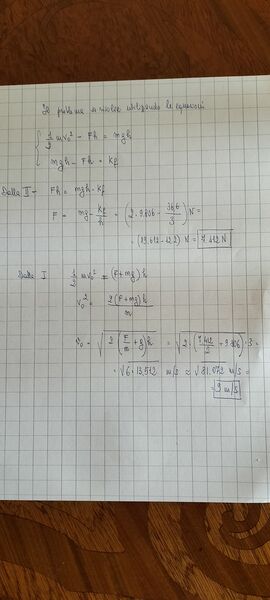 Il problema si risolve utilizzando le equazioni
{ 1/2 mv₀² - Fh = mgh
mgh - Fh = Kf
Dalla II- Fh = mgh - Kf
F = mg - Kf/h = (2·9.806 - 36.6/3) N =
= (19.612 - 12.2) N = 7.412 N
Dalla I 1/2 mv₀² = (F+mg)h
v₀² = 2(F+mg)h/m
v₀ = √(2(F/m + g)h) = √(2·(7.412/2 + 9.806)·3 =
= √(6·13.512) m/s ≈ √81.072 m/s =
= 9 m/s